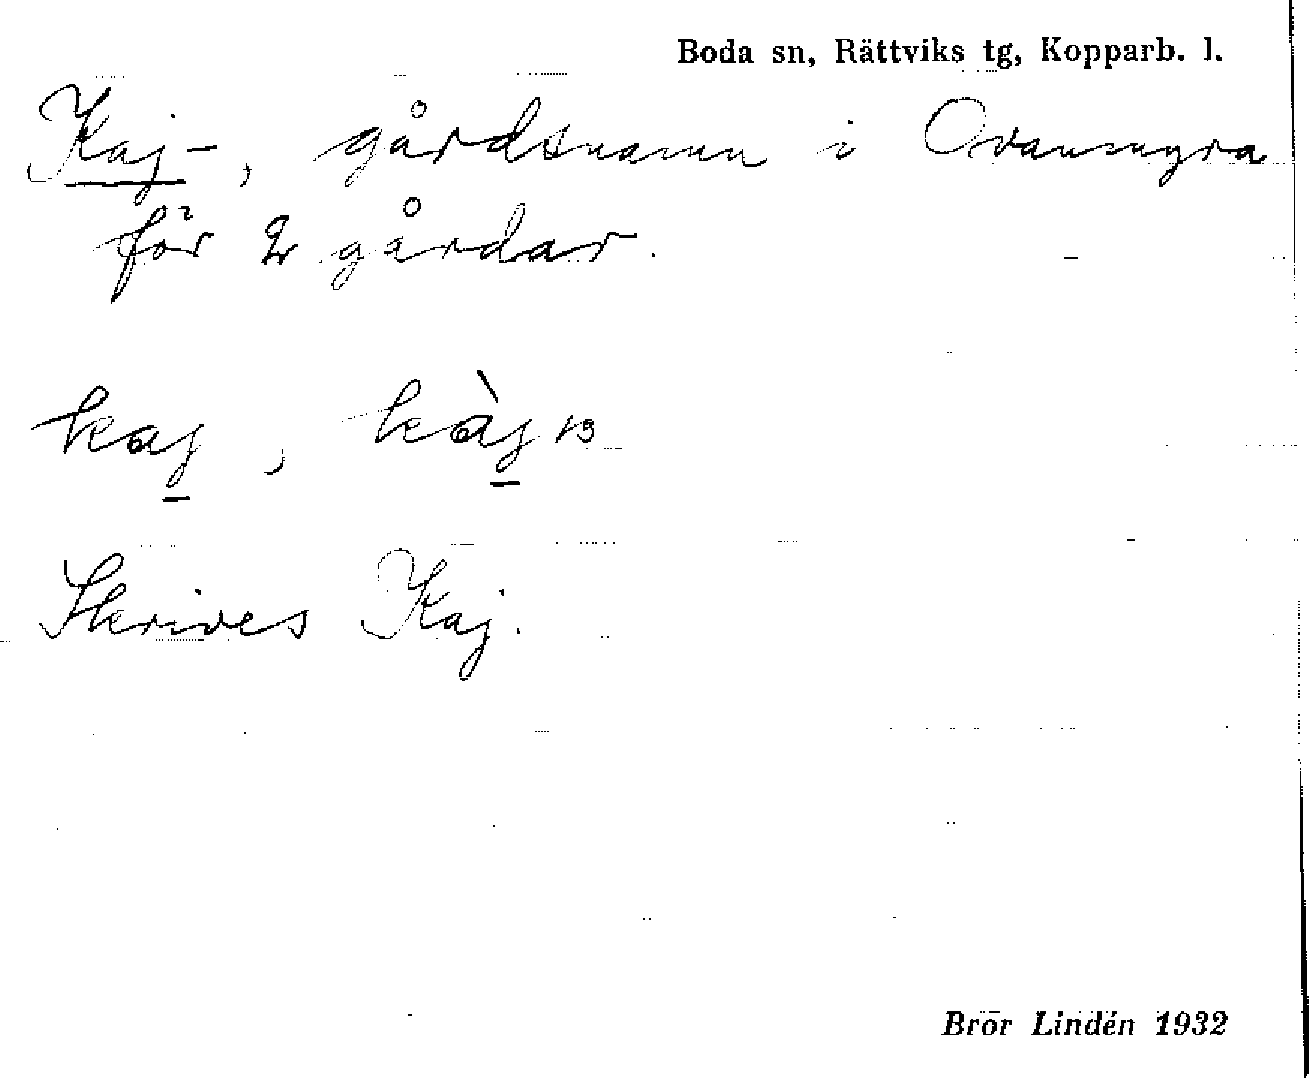 Boda sn, Rättviks tg, Kopparb. l.
Kaj-, gårdsnamn i Ovanmyra
för 2 gårdar.
kaj, kàj
Skrives Kaj.
Bror Lindén 1932